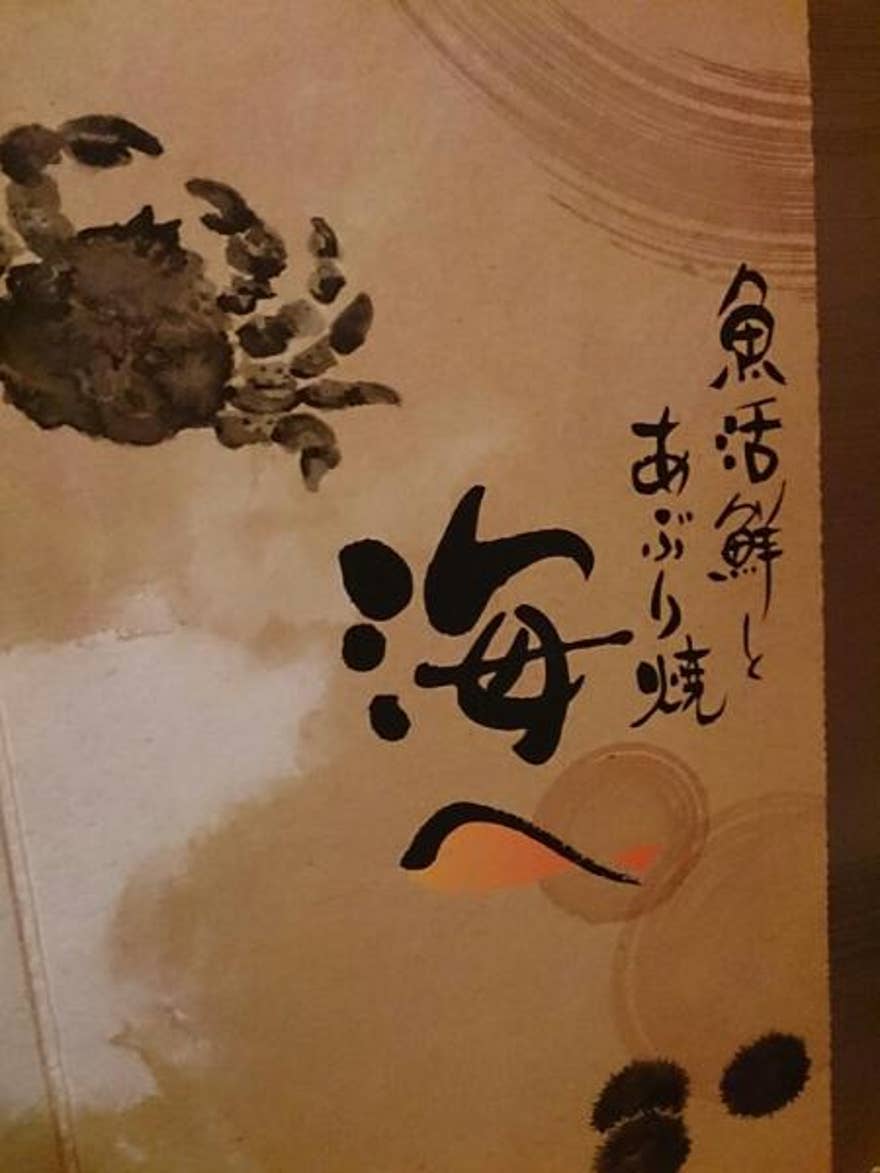 魚活鮮と
あぶり焼
海へ